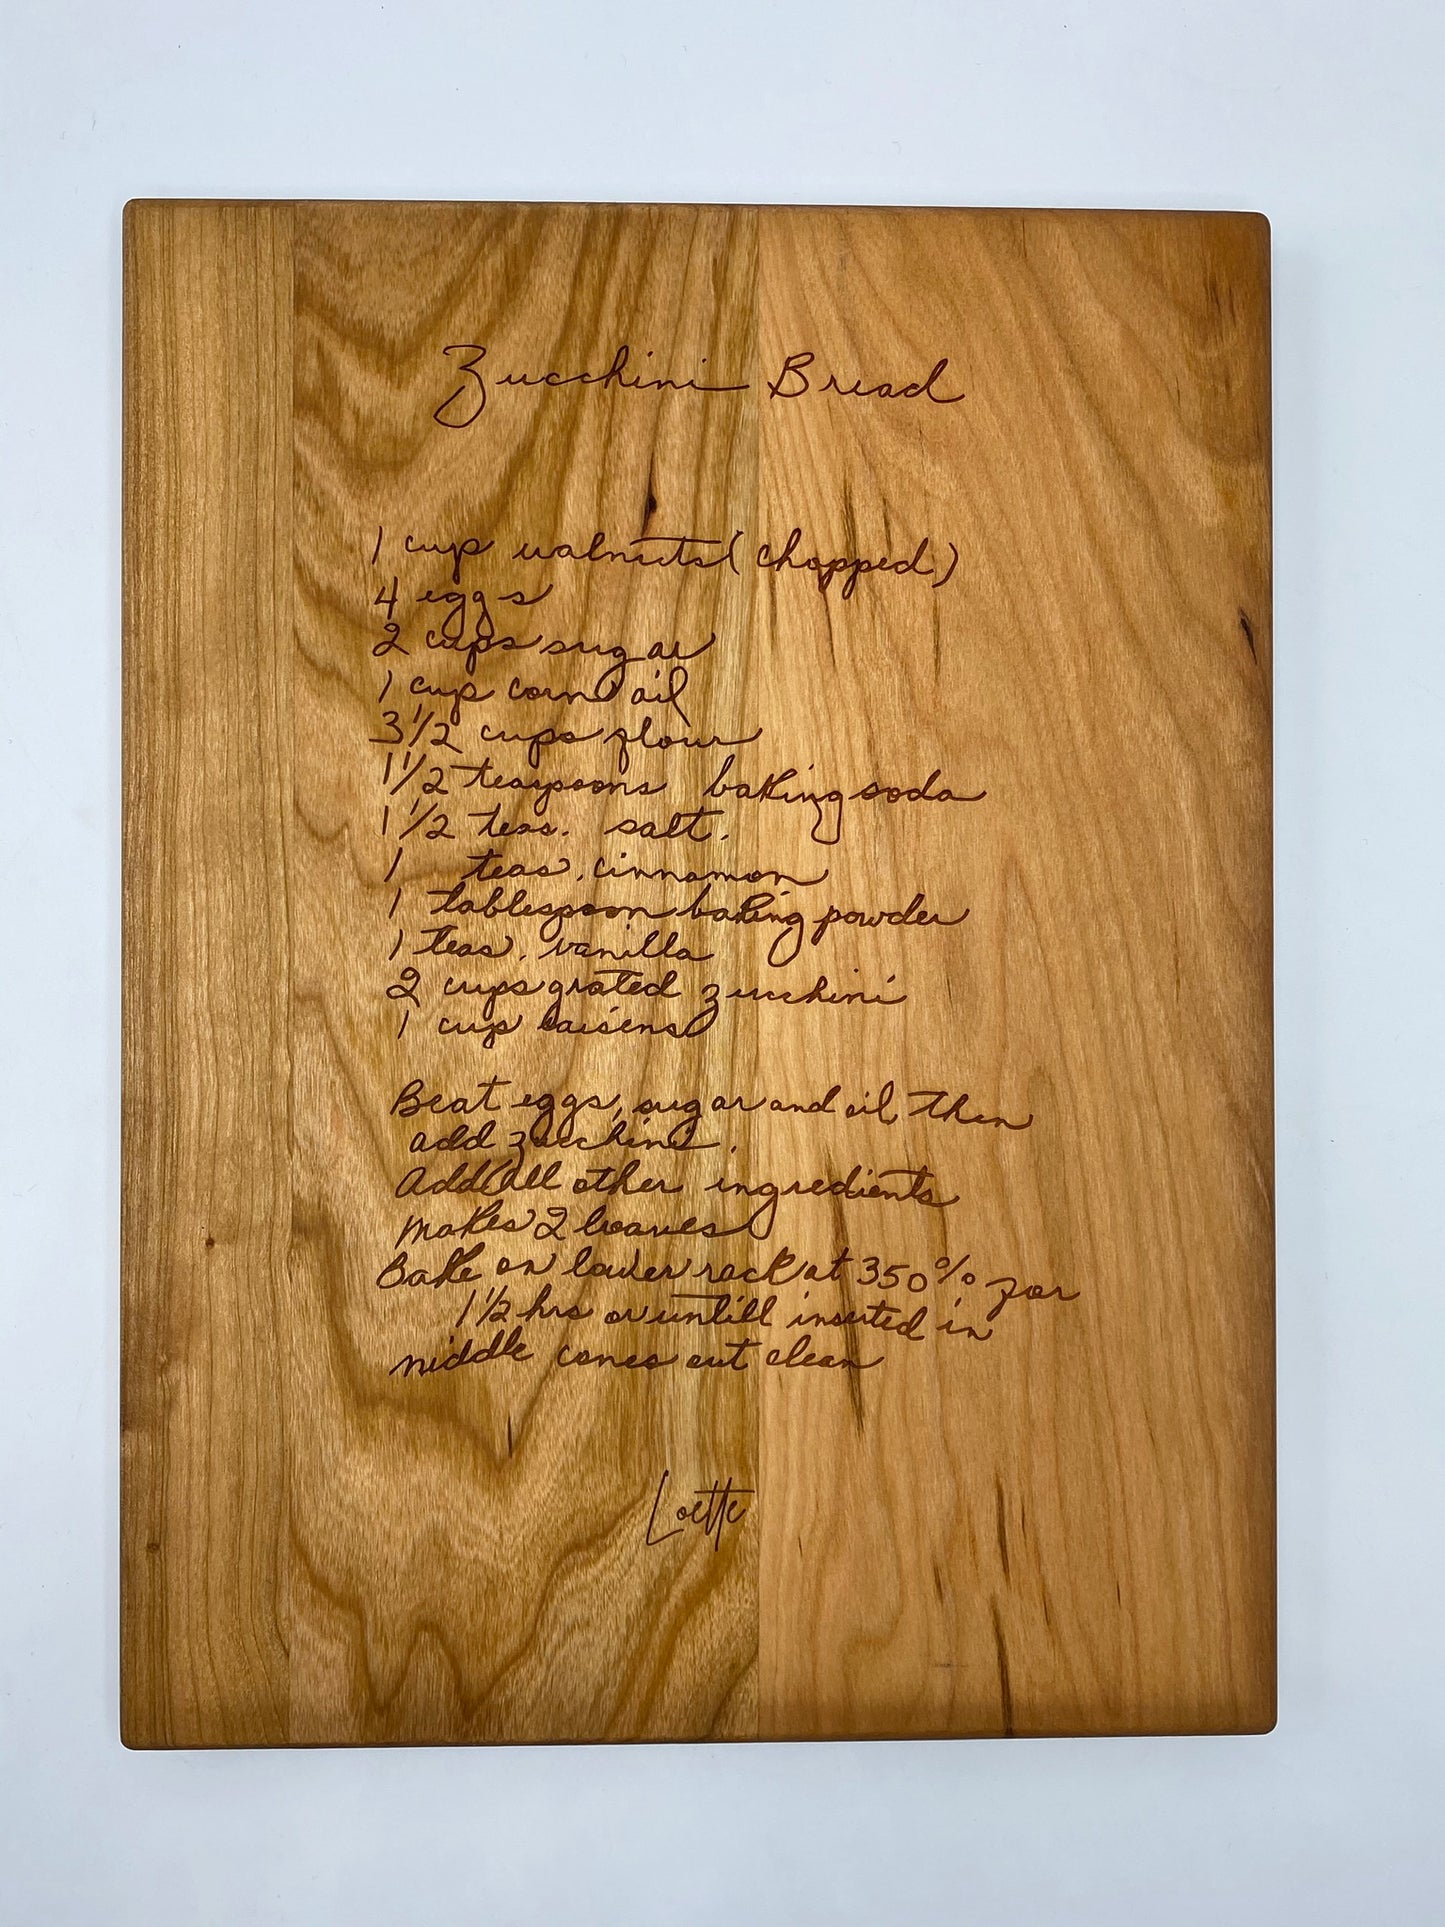 Zucchini Bread
1 cup walnuts (chopped)
4 eggs
2 cups sugar
1 cup corn oil
3 1/2 cups flour
1 1/2 teaspoons baking soda
1 1/2 teas. salt.
1 teas. cinnamon
1 tablespoon baking powder
1 teas. vanilla
2 cups grated zucchini
1 cup raisens
Beat eggs, sugar and oil then
add zucchini.
Add all other ingredients
makes 2 loaves
Bake on lower rack at 350% for
1 1/2 hrs or untill inserted in
middle comes out clean
Loette